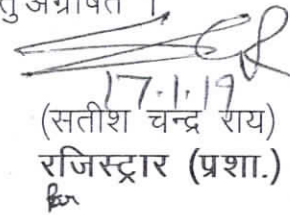 तु अग्रेषित ।
17.1.19
(सतीश चन्द्र राय)
रजिस्ट्रार (प्रशा.)